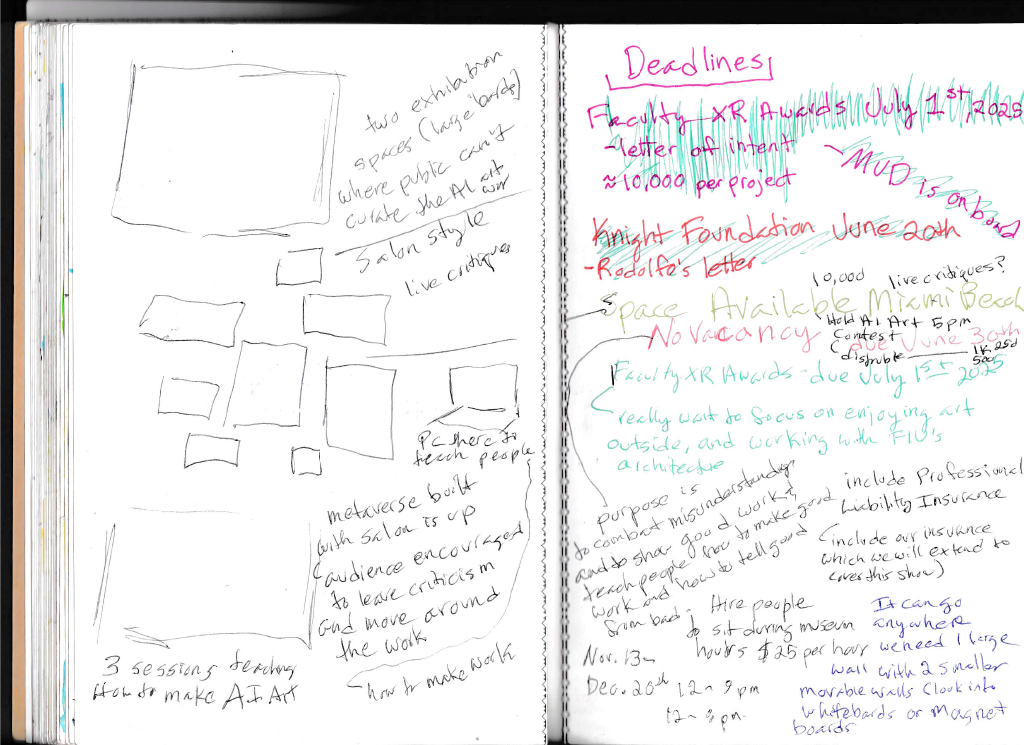 two exhibition
spaces (large boards)
where public can't
curate the AI art
work
Salon style
live critiques
PC there to
teach people
metaverse built
with salon is up
(audience encouraged
to leave criticism
and move around
the work
how to make work
3 sessions teaching
How to make AI Art
Deadlines
Faculty XR Awards July 1st, 2025
- letter of intent
≈ 10,000 per project
- MUD is on board
Knight Foundation June 20th
- Rodolfo's letter
10,000 live critiques?
Space Available Miami Beach
Hold AI Art 5pm
No vacancy
Contest
due June 30th
( disribute
1K 250
500
Faculty XR Awards - due July 1st 2025
really want to focus on enjoying art
outside, and working with FIU's
architecture
purpose is
to combat misunderstanding
and to show good work,
teach people how to make good
work and how to tell good
from bad.
include Professional
Liability Insurance
(include our insurance
which we will extend to
cover this show)
Hire people
to sit during museum
hours $25 per hour
Nov. 13 -
Dec. 20th 12 - 9 pm
12 - 9 pm.
It can go
anywhere
we need 1 large
wall with 2 smaller
movable walls (look into
whitebards or magnet
boards